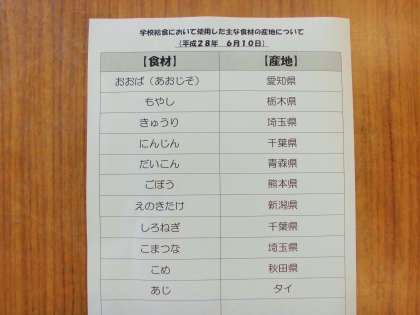 学校給食において使用した主な食材の産地について
(平成28年 6月10日)
【食材】 【産地】
おおば(あおじそ) 愛知県
もやし 栃木県
きゅうり 埼玉県
にんじん 千葉県
だいこん 青森県
ごぼう 熊本県
えのきたけ 新潟県
しろねぎ 千葉県
こまつな 埼玉県
こめ 秋田県
あじ タイ